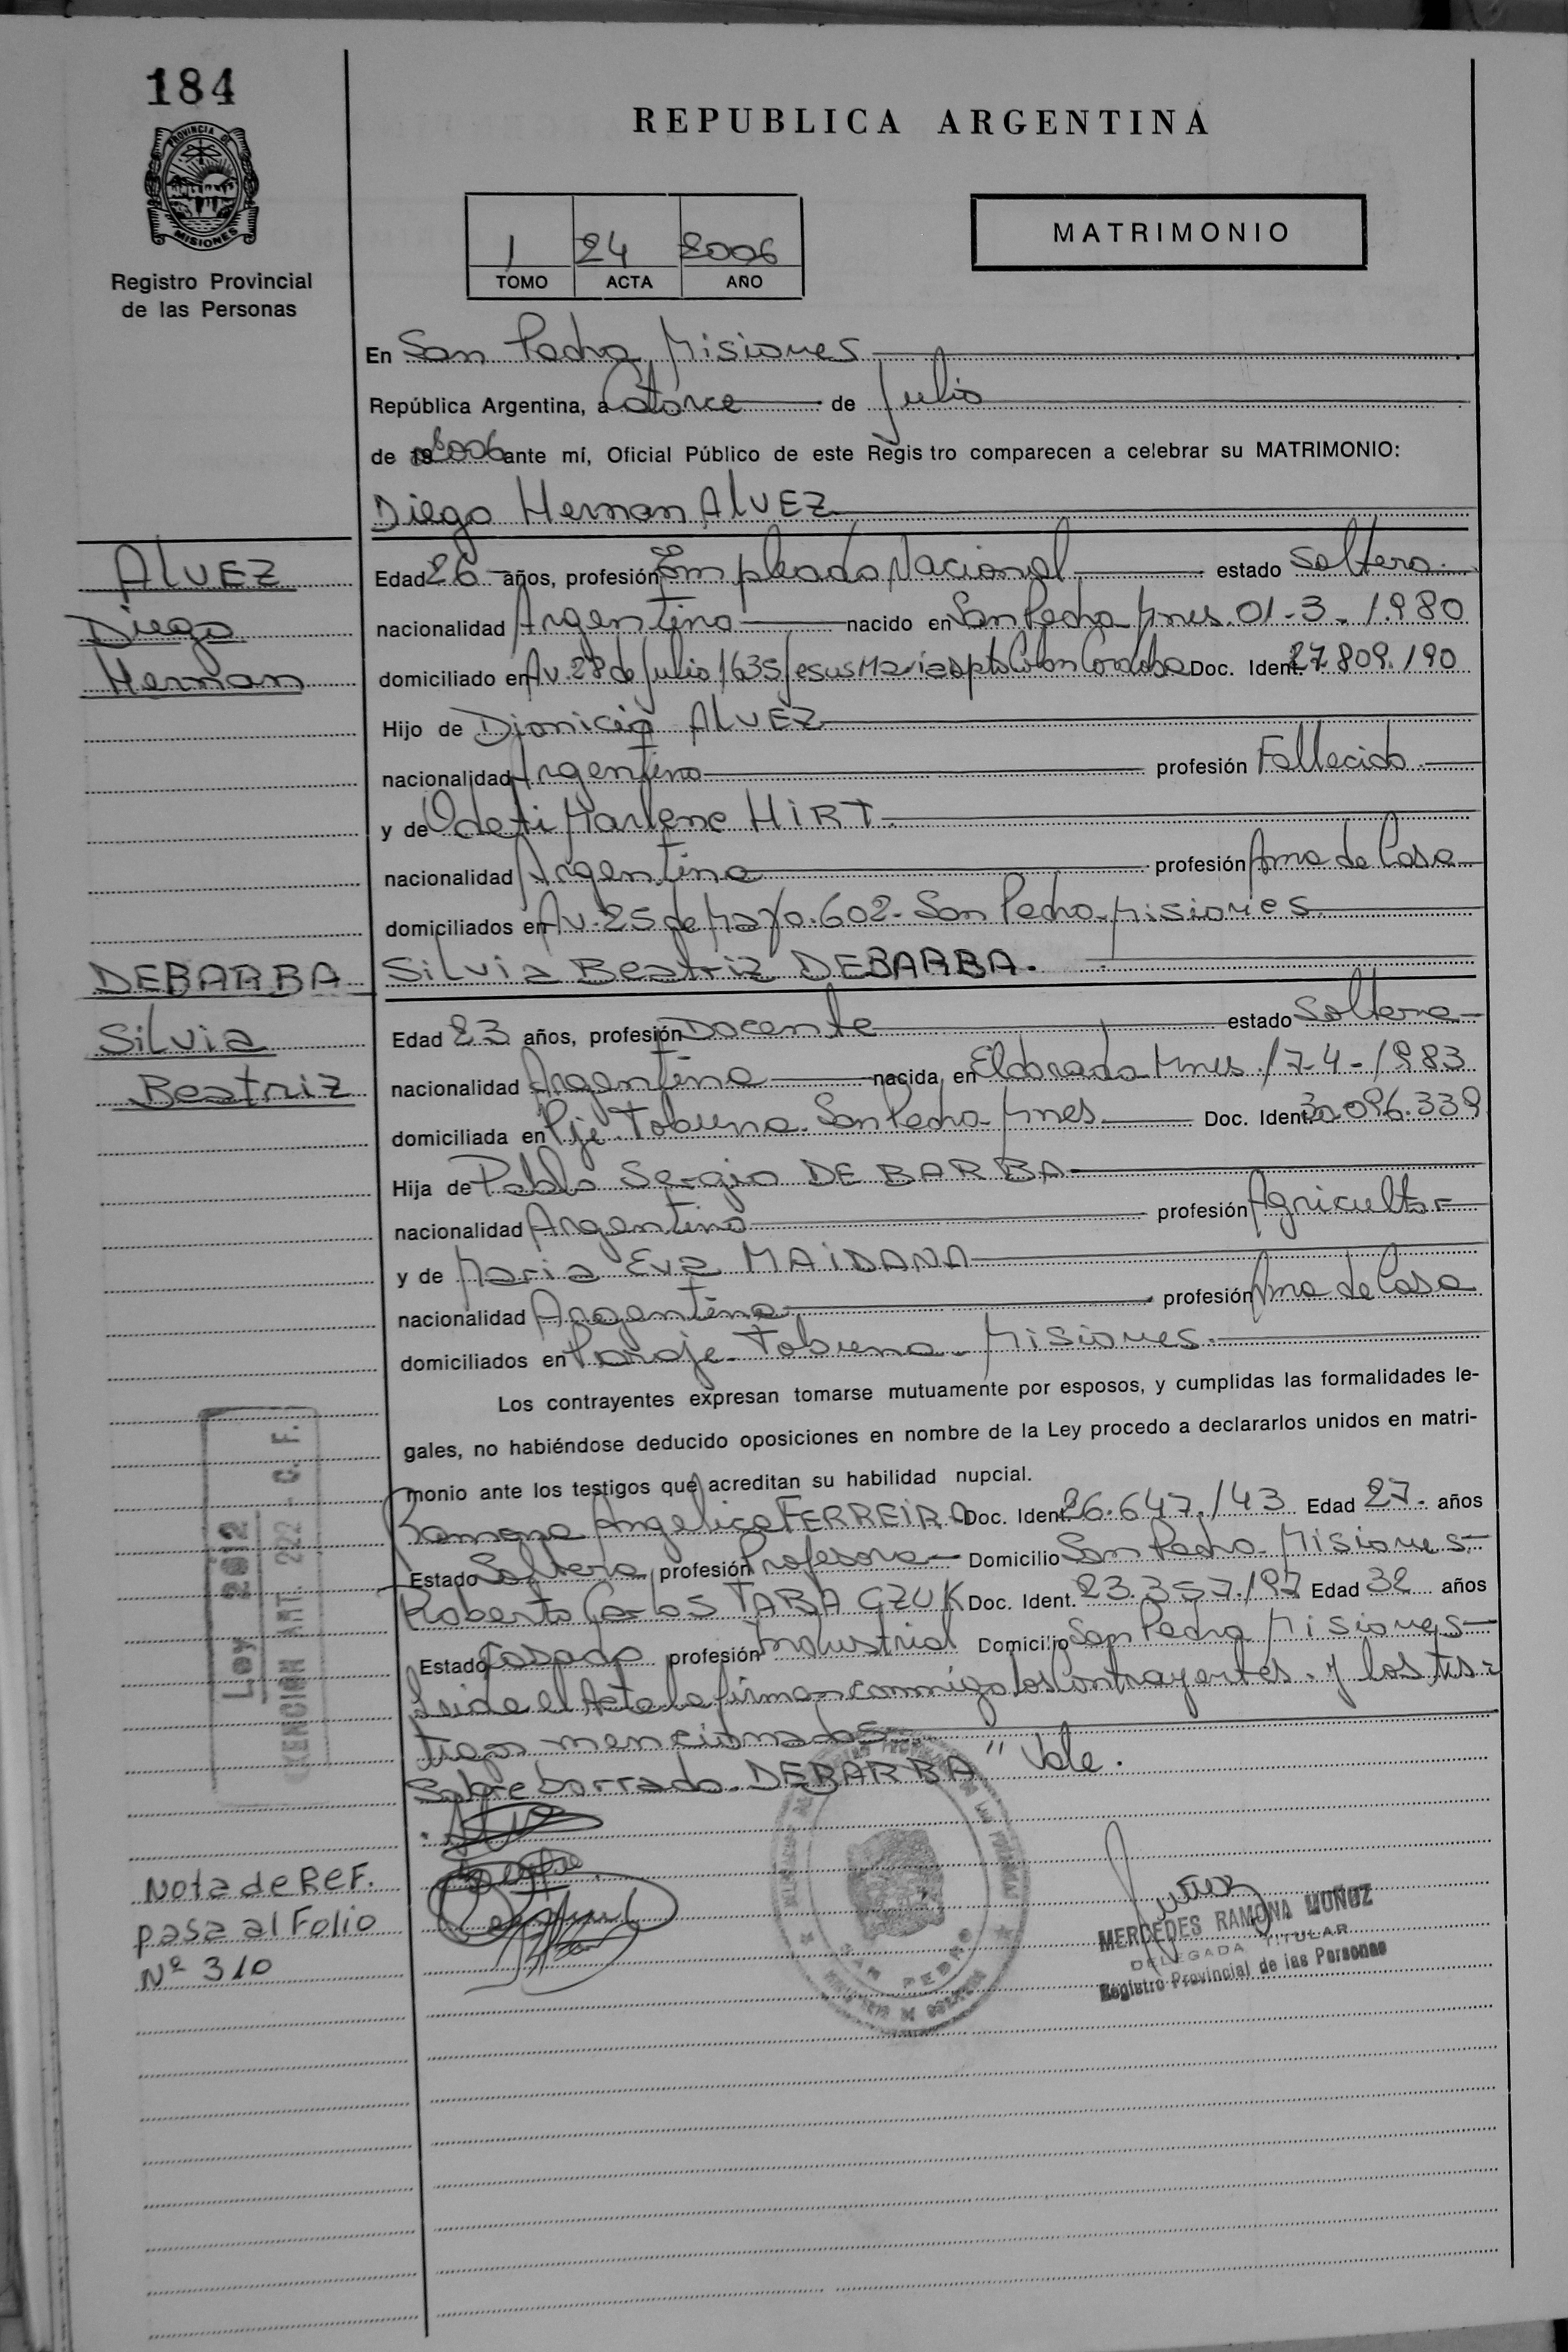 184
PROVINCIA DE
MISIONES
Registro Provincial
de las Personas
REPUBLICA ARGENTINA
1 24 2006
TOMO ACTA AÑO
MATRIMONIO
En San Pedro, Misiones
República Argentina, a Catorce de Julio
de 2006 ante mí, Oficial Público de este Registro comparecen a celebrar su MATRIMONIO:
Diego Hernan AlVEZ
AlVEZ
Diego
Hernan
Edad 26 años, profesión Empleado Nacional estado Soltero
nacionalidad Argentino nacido en San Pedro Mnes. 01-3-1.980
domiciliado en Av. 28 de Julio 1635 Jesus Maria dpto Colon Cordoba Doc. Ident. 27.809.190
Hijo de Dionicio AlVEZ
nacionalidad Argentino profesión Fallecido
y de Odeti Marlene HIRT.
nacionalidad Argentina profesión Ama de Casa
domiciliados en Av. 25 de Mayo. 602- San Pedro- Misiones
DEBARBA
Silvia
Beatriz
Silvia Beatriz DEBARBA.
Edad 23 años, profesión Docente estado Soltera
nacionalidad Argentina nacida en Eldorado Mnes. 17-4-1983
domiciliada en Pje. Tobuna. San Pedro Mnes Doc. Ident. 30.096.339
Hija de Pablo Sergio DEBARBA
nacionalidad Argentino profesión Agricultor
y de Maria Eva MAIDANA
nacionalidad Argentina profesión Ama de Casa
domiciliados en Paraje Tobuna- Misiones.
Los contrayentes expresan tomarse mutuamente por esposos, y cumplidas las formalidades le-
gales, no habiéndose deducido oposiciones en nombre de la Ley procedo a declararlos unidos en matri-
monio ante los testigos que acreditan su habilidad nupcial.
Ramona Angelica FERREIRA Doc. Ident. 26.647.143 Edad 27. años
Estado Soltera profesión Profesora Domicilio San Pedro- Misiones.
Roberto Carlos TARACZUK Doc. Ident. 23.357.197 Edad 32 años
Estado Casado profesión Industrial Domicilio San Pedro Misiones
Leida el Acta la firman conmigo los Contrayentes. y los tes-
tigos mencionados
Sobre borrado. DEBARBA" Vale.
Ley 2012
EXENCION ART. 222 - C. F.
Nota de REF.
pasa al Folio
Nº 310
SAN PEDRO
MERCEDES RAMONA MUÑOZ
DELEGADA TITULAR
Registro Provincial de las Personas